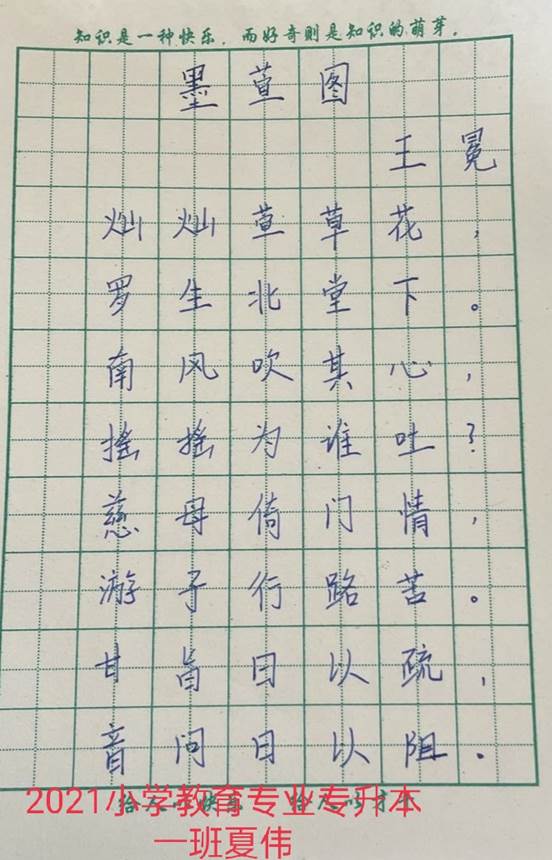 知识是一种快乐，而好奇则是知识的萌芽。
墨萱图
王冕
灿灿萱草花，
罗生北堂下。
南风吹其心，
摇摇为谁吐？
慈母倚门情，
游子行路苦。
甘旨日以疏，
音问日以阻。
2021小学教育专业专升本
一班夏伟